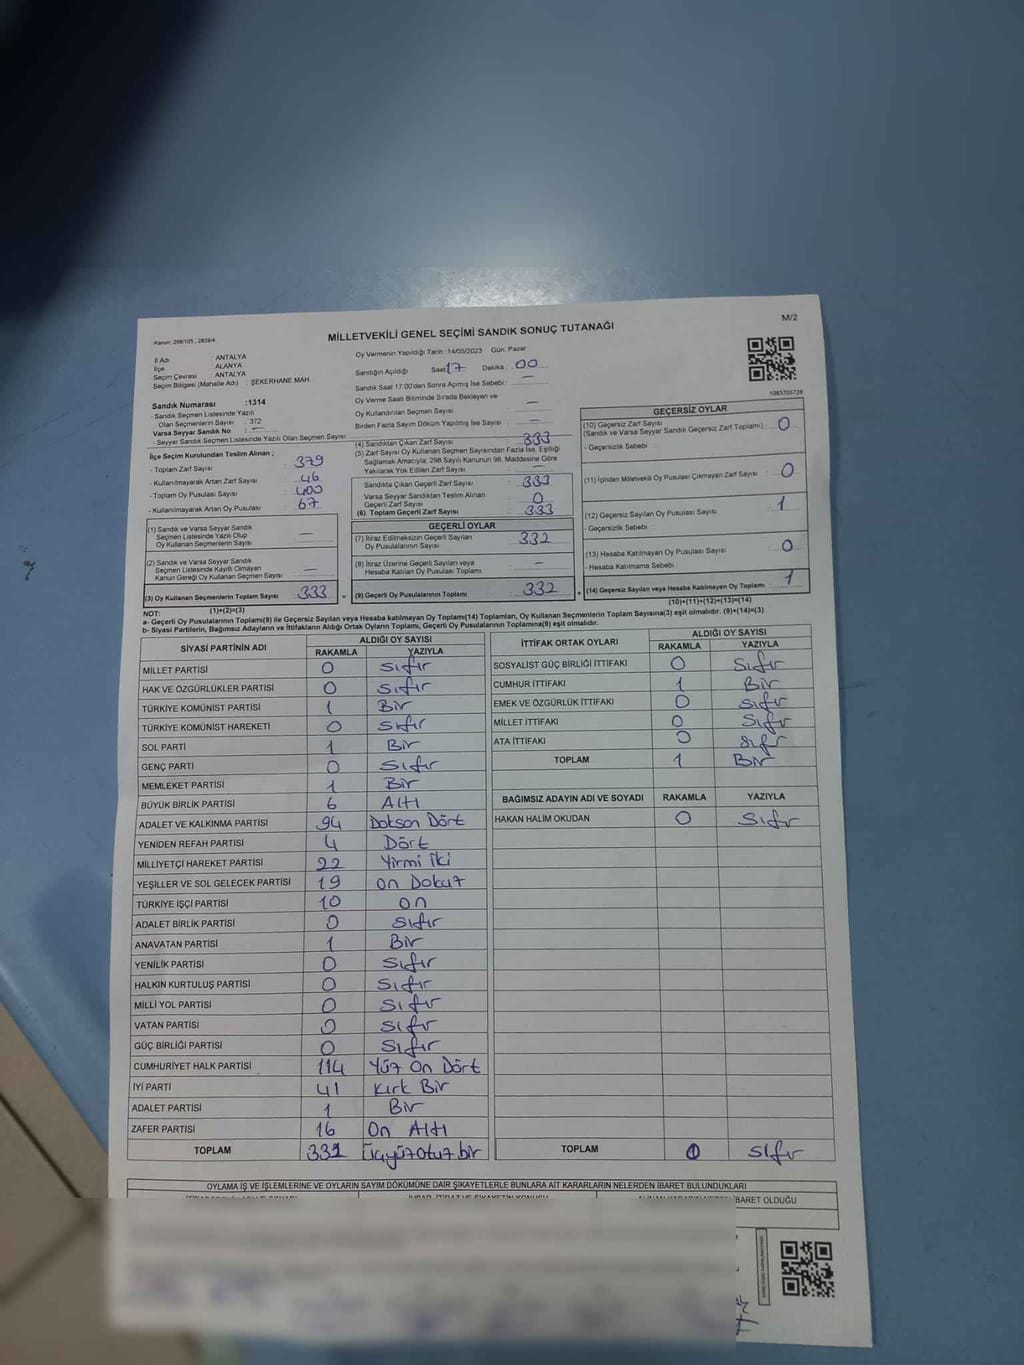 Kanun: 298/105 , 2839/4
MİLLETVEKİLİ GENEL SEÇİMİ SANDIK SONUÇ TUTANAĞI
M/2
İl Adı : ANTALYA
İlçe : ALANYA
Seçim Çevresi : ANTALYA
Seçim Bölgesi (Mahalle Adı) : ŞEKERHANE MAH.
Oy Vermenin Yapıldığı Tarih : 14/05/2023 Gün: Pazar
Sandığın Açıldığı Saat : 17 Dakika : 00
Sandık Saat 17:00'dan Sonra Açımış İse Sebebi : —
Oy Verme Saati Bitiminde Sırada Bekleyen ve
Oy Kullandırılan Seçmen Sayısı —
Birden Fazla Sayım Döküm Yapılmış İse Sayısı : —
1083705728
Sandık Numarası :1314
- Sandık Seçmen Listesinde Yazılı
Olan Seçmenlerin Sayısı : 372
Varsa Seyyar Sandık No : —
- Seyyar Sandık Seçmen Listesinde Yazılı Olan Seçmen Sayısı
İlçe Seçim Kurulundan Teslim Alınan ;
- Toplam Zarf Sayısı : 379
- Kullanılmayarak Artan Zarf Sayısı : 46
- Toplam Oy Pusulası Sayısı : 400
- Kullanılmayarak Artan Oy Pusulası : 67
(1) Sandık ve Varsa Seyyar Sandık
Seçmen Listesinde Yazılı Olup
Oy Kullanan Seçmenlerin Sayısı —
(2) Sandık ve Varsa Seyyar Sandık
Seçmen Listesinde Kayıtlı Olmayan
Kanun Gereği Oy Kullanan Seçmen Sayısı —
(3) Oy Kullanan Seçmenlerin Toplam Sayısı 333 =
(1)+(2)=(3)
(4) Sandıktan Çıkan Zarf Sayısı 333
(5) Zarf Sayısı Oy Kullanan Seçmen Sayısından Fazla İse, Eşitliği
Sağlamak Amacıyla; 298 Sayılı Kanunun 98. Maddesine Göre
Yakılarak Yok Edilen Zarf Sayısı —
Sandıkta Çıkan Geçerli Zarf Sayısı : 333
Varsa Seyyar Sandıktan Teslim Alınan
Geçerli Zarf Sayısı : 0
(6) Toplam Geçerli Zarf Sayısı : 333
GEÇERLİ OYLAR
(7) İtiraz Edilmeksizin Geçerli Sayılan
Oy Pusulalarının Sayısı : 332
(8) İtiraz Üzerine Geçerli Sayılan veya
Hesaba Katılan Oy Pusulası Toplamı : —
(9) Geçerli Oy Pusulalarının Toplamı : 332 +
GEÇERSİZ OYLAR
(10) Geçersiz Zarf Sayısı
(Sandık ve Varsa Seyyar Sandık Geçersiz Zarf Toplamı) : 0
- Geçersizlik Sebebi
(11) İçinden Milletvekili Oy Pusulası Çıkmayan Zarf Sayısı : 0
(12) Geçersiz Sayılan Oy Pusulası Sayısı : 1
- Geçersizlik Sebebi
(13) Hesaba Katılmayan Oy Pusulası Sayısı : 0
- Hesaba Katılmama Sebebi
(14) Geçersiz Sayılan veya Hesaba Katılmayan Oy Toplamı : 1
(10)+(11)+(12)+(13)=(14)
NOT:
a- Geçerli Oy Pusulalarının Toplamı(9) ile Geçersiz Sayılan veya Hesaba katılmayan Oy Toplamı(14) Toplamları, Oy Kullanan Seçmenlerin Toplam Sayısına(3) eşit olmalıdır. (9)+(14)=(3)
b- Siyasi Partilerin, Bağımsız Adayların ve İttifakların Aldığı Ortak Oyların Toplamı, Geçerli Oy Pusulalarının Toplamına(9) eşit olmalıdır.
SİYASİ PARTİNİN ADI ALDIĞI OY SAYISI
RAKAMLA YAZIYLA
MİLLET PARTİSİ 0 Sıfır
HAK VE ÖZGÜRLÜKLER PARTİSİ 0 Sıfır
TÜRKİYE KOMÜNİST PARTİSİ 1 Bir
TÜRKİYE KOMÜNİST HAREKETİ 0 Sıfır
SOL PARTİ 1 Bir
GENÇ PARTİ 0 Sıfır
MEMLEKET PARTİSİ 1 Bir
BÜYÜK BİRLİK PARTİSİ 6 Altı
ADALET VE KALKINMA PARTİSİ 94 Doksan Dört
YENİDEN REFAH PARTİSİ 4 Dört
MİLLİYETÇİ HAREKET PARTİSİ 22 Yirmi iki
YEŞİLLER VE SOL GELECEK PARTİSİ 19 on Dokuz
TÜRKİYE İŞÇİ PARTİSİ 10 on
ADALET BİRLİK PARTİSİ 0 sıfır
ANAVATAN PARTİSİ 1 Bir
YENİLİK PARTİSİ 0 Sıfır
HALKIN KURTULUŞ PARTİSİ 0 Sıfır
MİLLİ YOL PARTİSİ 0 Sıfır
VATAN PARTİSİ 0 Sıfır
GÜÇ BİRLİĞİ PARTİSİ 0 Sıfır
CUMHURİYET HALK PARTİSİ 114 Yüz On Dört
İYİ PARTİ 41 Kırk Bir
ADALET PARTİSİ 1 Bir
ZAFER PARTİSİ 16 On Altı
TOPLAM 331 Üçyüzotuz bir
İTTİFAK ORTAK OYLARI ALDIĞI OY SAYISI
RAKAMLA YAZIYLA
SOSYALİST GÜÇ BİRLİĞİ İTTİFAKI 0 Sıfır
CUMHUR İTTİFAKI 1 Bir
EMEK VE ÖZGÜRLÜK İTTİFAKI 0 Sıfır
MİLLET İTTİFAKI 0 Sıfır
ATA İTTİFAKI 0 Sıfır
TOPLAM 1 Bir
BAĞIMSIZ ADAYIN ADI VE SOYADI RAKAMLA YAZIYLA
HAKAN HALİM OKUDAN 0 Sıfır
TOPLAM 0 sıfır
OYLAMA İŞ VE İŞLEMLERİNE VE OYLARIN SAYIM DÖKÜMÜNE DAİR ŞİKAYETLERLE BUNLARA AİT KARARLARIN NELERDEN İBARET BULUNDUKLARI
İBARET OLDUĞU